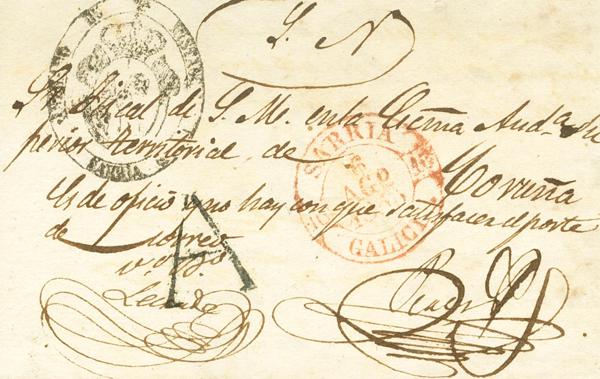 S. N
Sr. Fiscal de S. M. en la Exma Auda. Su
perior territorial de Coruña
Es de oficio y no hay con que satisfacer el porte
de correo
SARRIA
SARRIA
AGO
GALICIA
A